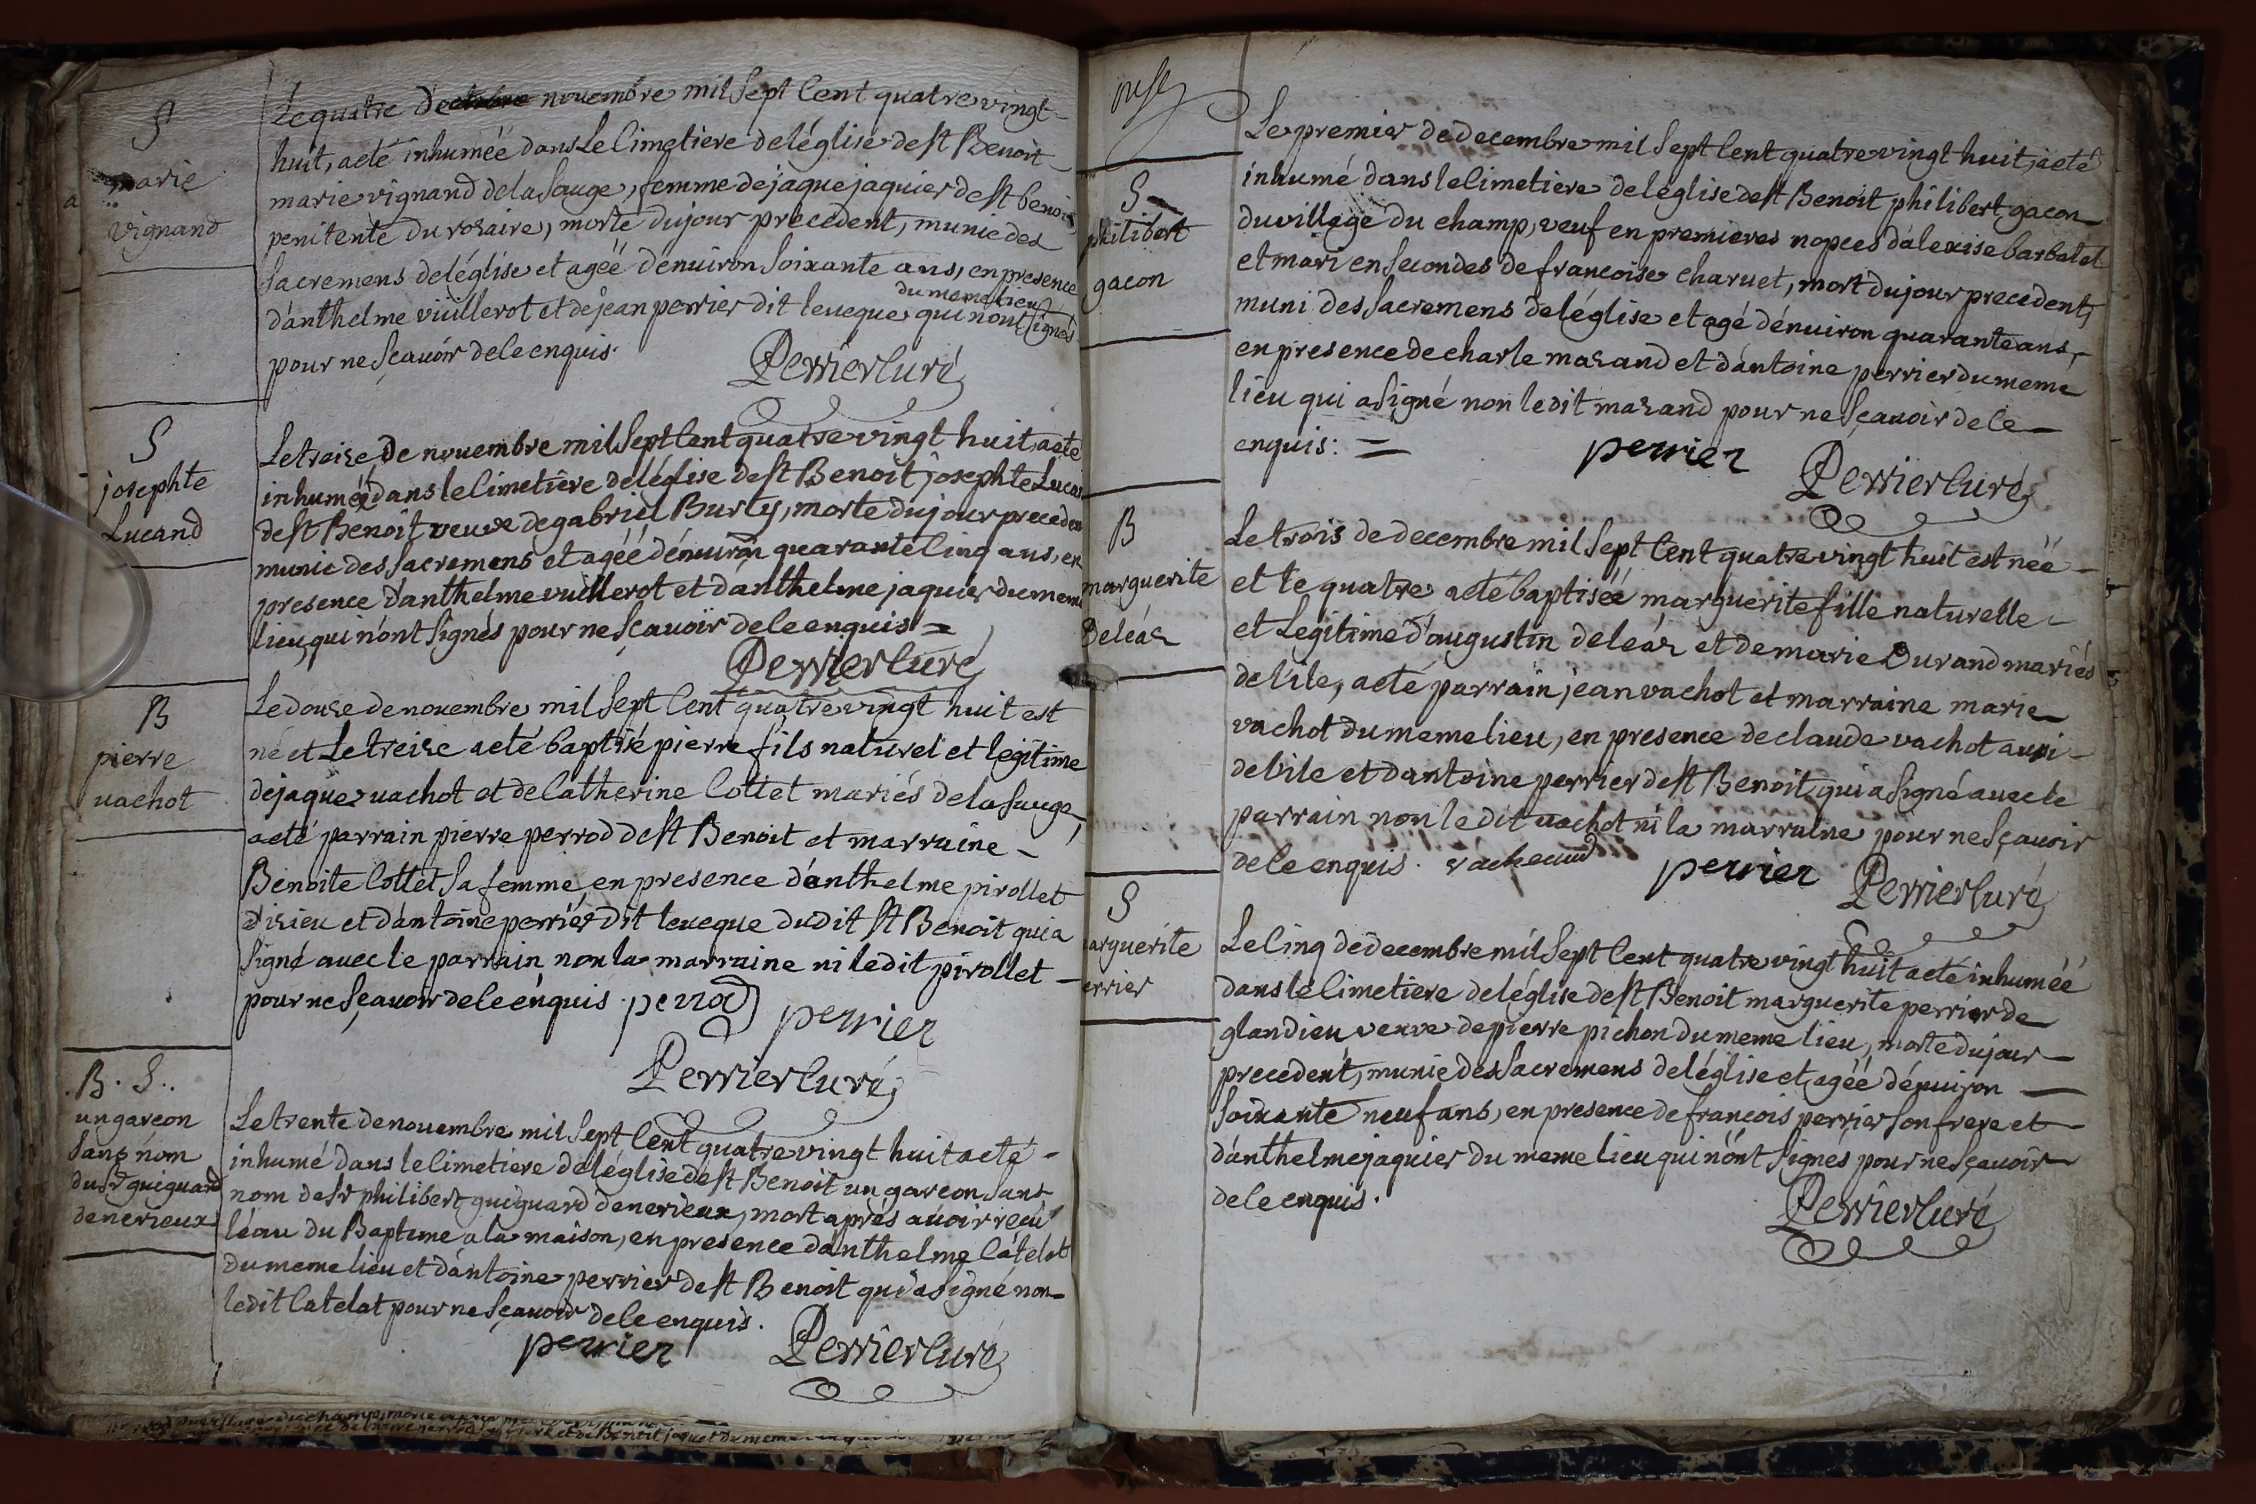 S
marie
vignand
Le quatre de octobre novembre mil sept cent quatre vingt
huit, a eté inhumée dans le cimetiere de l'église de st Benoit
marie vignand de la sauge, femme de jaque jaquier de st benoit
penitente du rosaire, morte du jour precedent, munie des
sacremens de l'église et agéé d'enuiron soixante ans, en presence
du meme lieu
d'anthelme viüllerot et de jean perrier dit leueque qui n'ont signés
pour ne sçauoir de le enquis.
Perrier curé
S
josephte
Lucand
Le treize de novembre mil sept cent quatre vingt huit a eté
inhuméé dans le cimetière de léglise de st Benoit josephte Lucan
de st Benoit veuve de gabriel Burty, morte du jour preceden
munie des sacremens et agéé d'enuiron quarante cinq ans, en
presence d'anthelme vuillerot et d'anthelme jaquier du meme
lieu, qui n'ont signés pour ne sçavoir de le enquis =
Perrier curé
B
pierre
vachot
Le douze de nouembre mil sept cent quatre vingt huit est
né et Le treize a eté baptisé pierre fils naturel et legitime
de jaque vachot et de Catherine Cottet mariés de la sauge,
a eté parrain pierre perrod de st Benoit et marraine -
Benoite Cottet sa femme, en presence d'anthelme pirollet
d'izieu et d'antoine perrier dit leueque dudit st Benoit qui a
signé auec le parrain non la marraine ni ledit pirollet -
pour ne sçauoir de le enquis. perrod
perrier
Perrier curé
B. S..
un garcon
sans nom
du sr guiguard
de nerieux
Le trente de nouembre mil sept cent quatre vingt huit a eté -
inhumé dans le cimetiere de léglise de st Benoit un garcon sans
nom de sr philibert guiguard de nerieux, mort après avoir reçu
léau du Bapteme a la maison, en presence d'anthelme Catelat
du meme lieu et d'antoine perrier de st Benoit qui a signé non -
ledit Catelat pour ne sçauoir de le enquis.
perrier
Perrier curé
Le premier de decembre mil sept cent quatre vingt huit, a eté
S
philibert
gacon
inhumé dans le cimetiere de léglise de st Benoit philibert gacon
du village du champ, veuf en premieres nopces d'alexise barbat et
et mari en secondes de francoise charuet, mort du jour precedent,
muni des sacremens de léglise et agé d'enuiron quarante ans,
en presence de charle mazand et d'antoine perrier du meme
lieu qui a signé non ledit mazand pour ne sçauoir de le
enquis : =
perrier
Perrier curé
B
marguerite
Deléaz
Le trois de decembre mil sept cent quatre vingt huit est néé -
et le quatre a eté baptiséé marguerite fille naturelle -
et Legitime d'augustin deléaz et de marie Durand mariés
de l'ile, a eté parrain jean vachot et marraine marie
vachot du meme lieu, en presence de claude vachot aussi -
de l'ile et d'antoine perrier de st Benoit, qui a signé auec le
parrain non le dit vachot ni la marraine pour ne sçavoir
de le enquis.
perrier
Perrier curé
S
arguerite
errier
Le cinq de decembre mil sept cent quatre vingt huit a eté inhuméé
dans le cimetiere de léglise de st Benoit marguerite perrier de
glandieu veuve de pierre pichon du meme lieu, morte du jour
precedent, munie des sacremens de léglise et agéé d'enuiron
soixante neuf ans, en presence de francois perrier son frere et
d'anthelme jaquier du meme lieu qui n'ont signés pour ne sçauoir
de le enquis.
Perrier curé